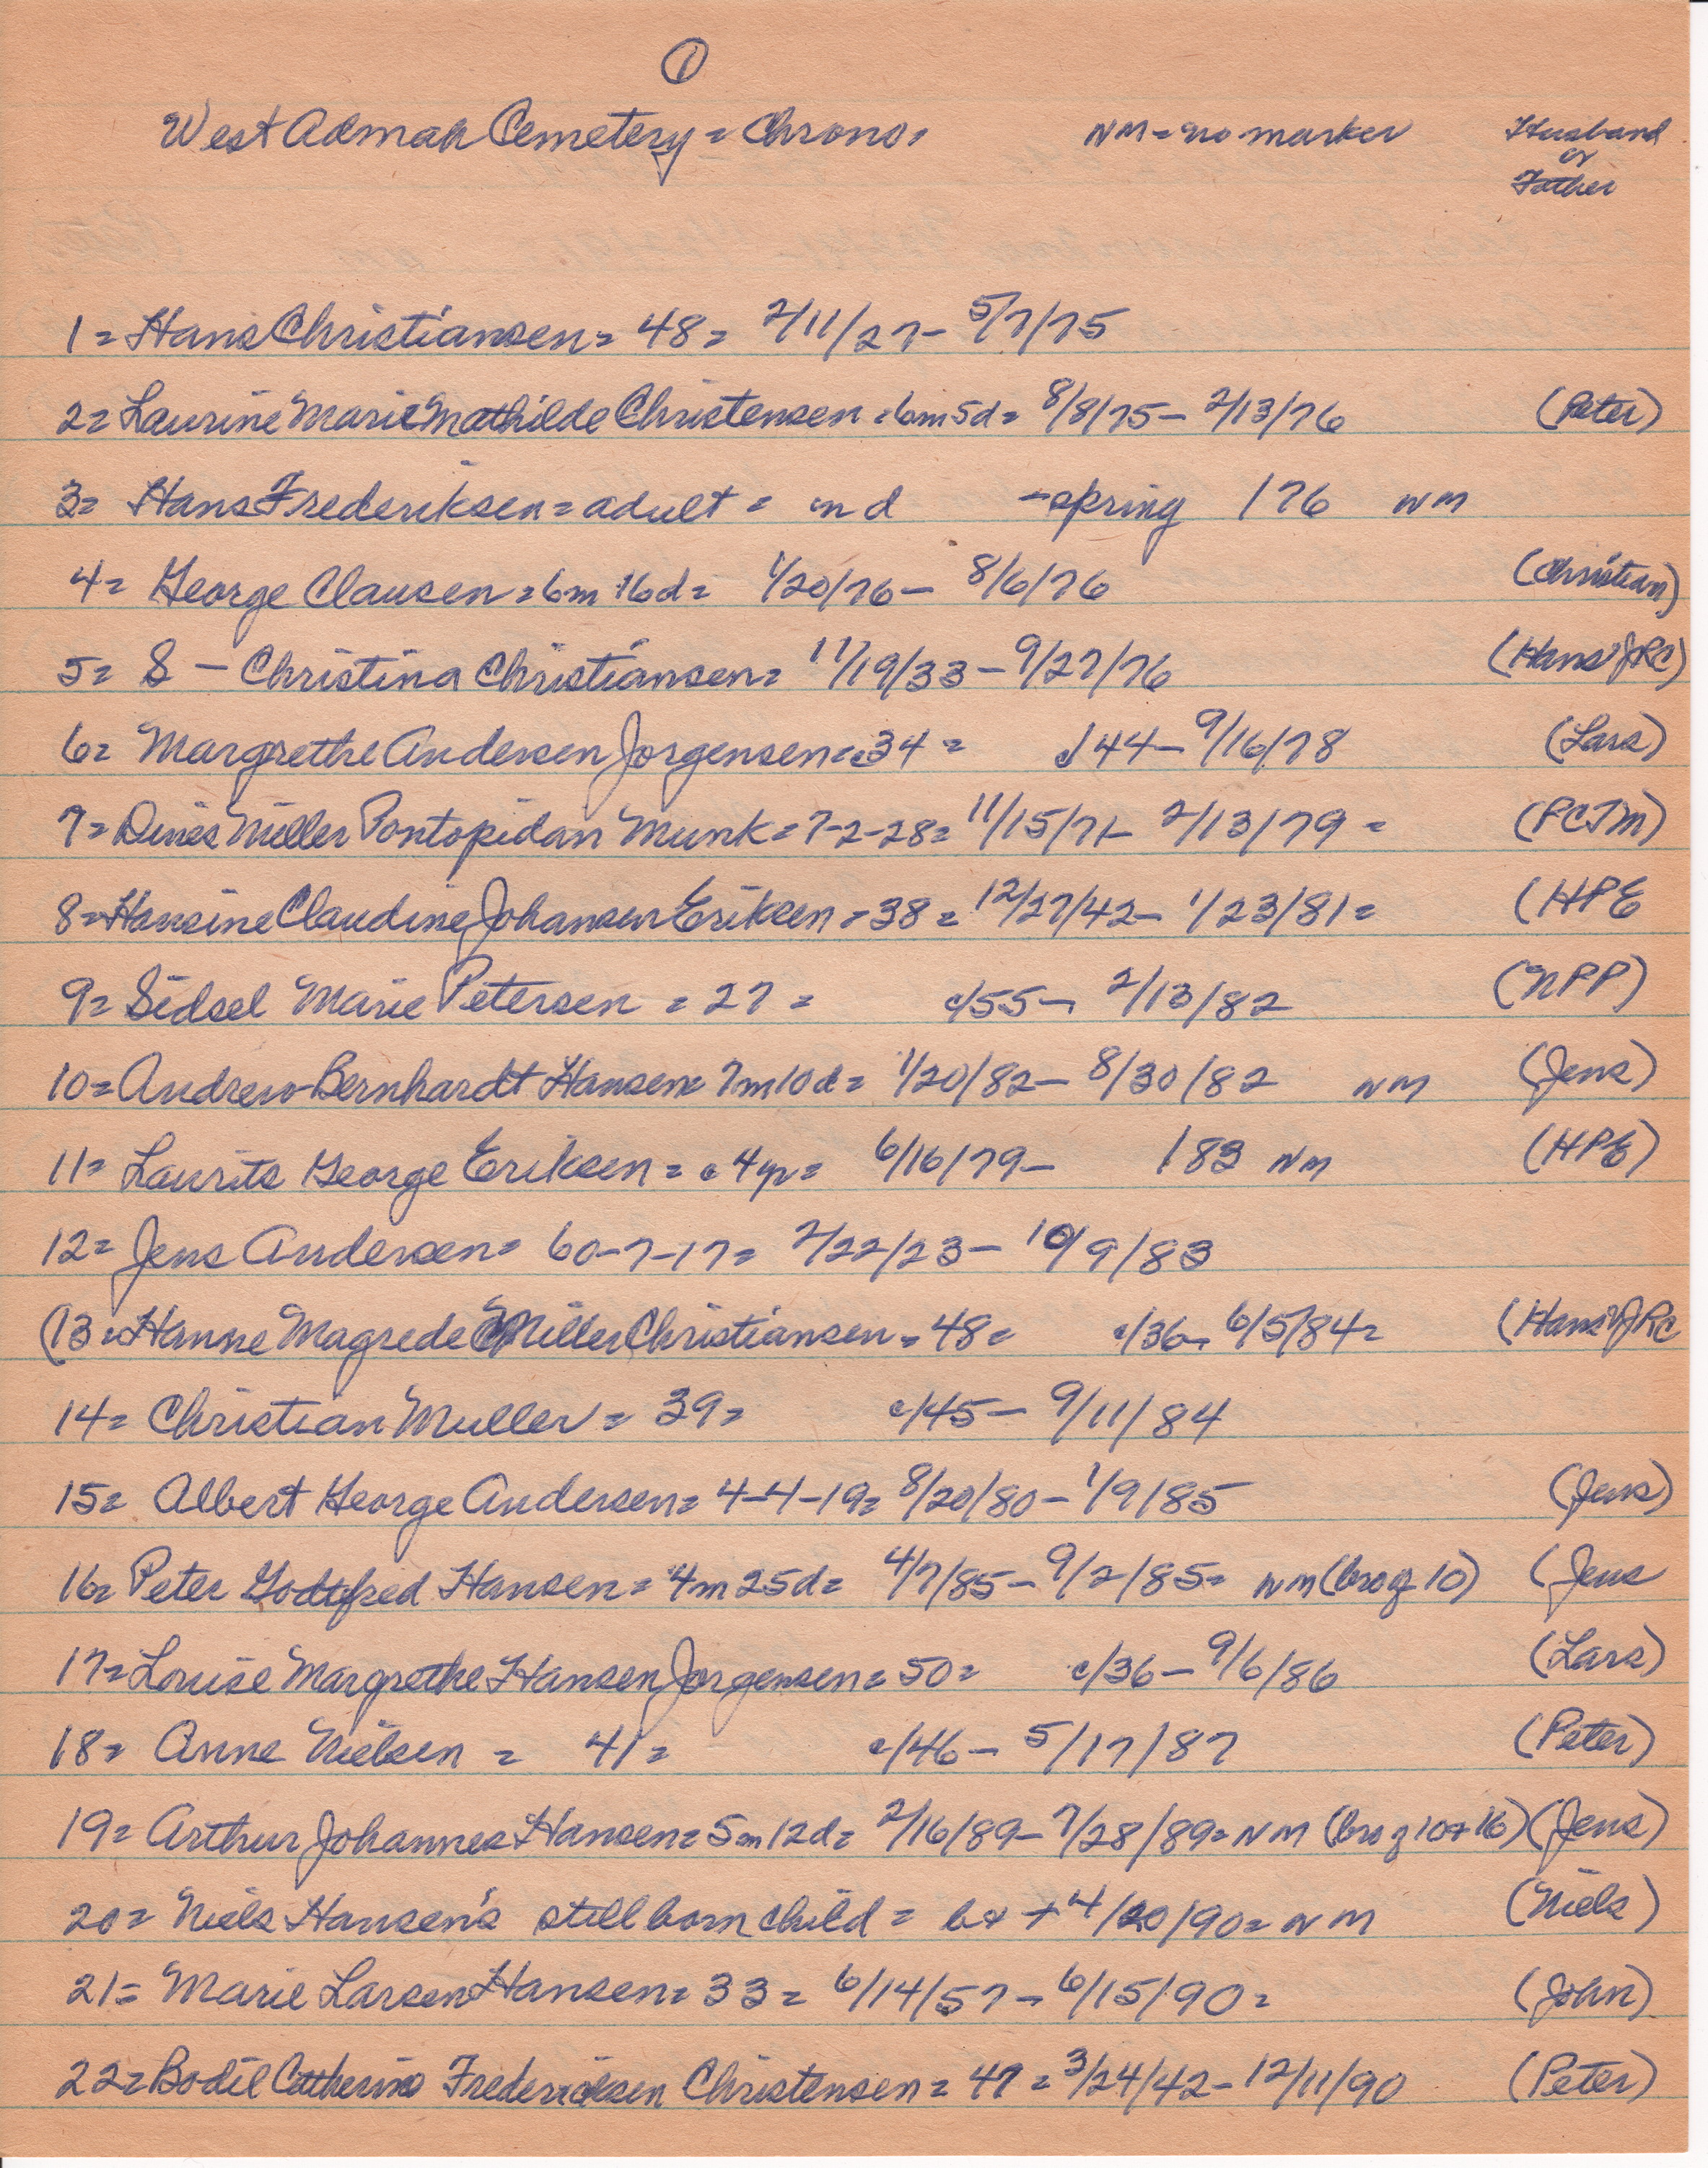 1
West Admah Cemetery = Chrono, NM = no marker Husband
or
Father
1 = Hans Christiansen = 48 = 2/11/27 - 5/7/75
2 = Laurine Marie Mathilde Christensen = 6m 5d = 8/8/75 - 2/13/76 (Peter)
3 = Hans Frederiksen = adult = nd - spring /76 NM
4 = George Clausen = 6m 16d = 1/20/76 - 8/6/76 (Christian)
5 = S - Christina Christiansen = 11/19/33 - 9/27/76 (Hans JRC)
6 = Margrethe Andersen Jorgensen = c34 = c/44 - 9/16/78 (Lars)
7 = Dines Miller Pontopidan Munk = 7-2-28 = 11/15/71 - 2/13/79 = (PCTM)
8 = Hansine Claudine Johansen Eriksen = 38 = 12/27/42 - 1/23/81 = (HPE
9 = Sidsel Marie Petersen = 27 = c/55 - 2/13/82 (NPP)
10 = Andrew Bernhardt Hansen = 7m 10d = 1/20/82 - 8/30/82 NM (Jens)
11 = Laurits George Eriksen = c 4yr = 6/16/79 - /83 NM (HPE)
12 = Jens Andersen = 60-7-17 = 2/22/23 - 10/9/83
(13 = Hanne Magrede Miller Christiansen = 48 = c/36 - 6/5/84 = (Hans JRC
14 = Christian Muller = 39 = c/45 - 9/11/84
15 = Albert George Andersen = 4-4-19 = 8/20/80 - 1/9/85 (Jens)
16 = Peter Godtfred Hansen = 4m 25d = 4/7/85 - 9/2/85 = NM (bro of 10) (Jens
17 = Louise Margrethe Hansen Jorgensen = 50 = c/36 - 9/6/86 (Lars)
18 = Anne Nielsen = 41 = c/46 - 5/17/87 (Peter)
19 = Arthur Johannes Hansen = 5m 12d = 2/16/89 - 7/28/89 = NM (bro of 10 + 16) (Jens)
20 = Niels Hansen's stillborn child = b & + 4/20/90 = NM (Niels)
21 = Marie Larsen Hansen = 33 = 6/14/57 - 6/15/90 = (John)
22 = Bodil Catherine Fredericksen Christensen = 47 = 3/24/42 - 12/11/90 (Peter)